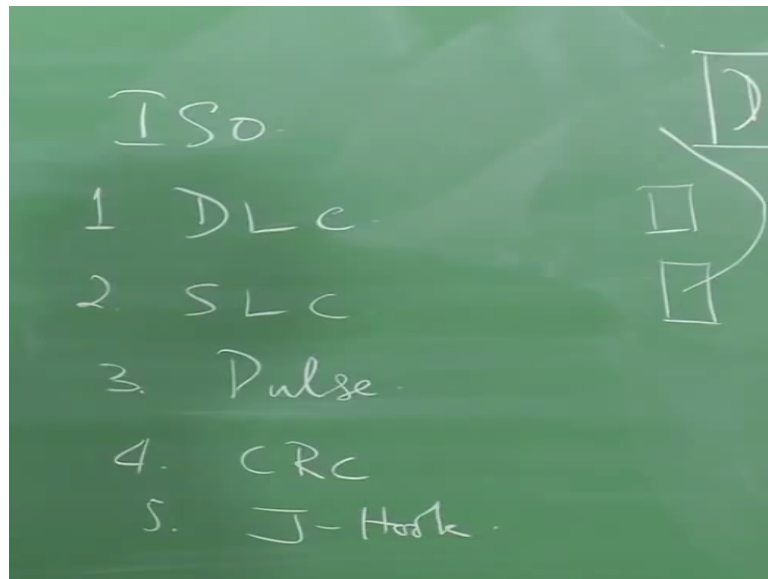 ISO.
1 DLC.
2. SLC
3. Pulse.
4. CRC
5. J-Hook.
D